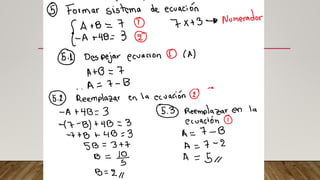 ⑤ Formar sistema de ecuación
{ A+B = 7 ①
-A + 4B = 3 ②
7x+3 → Numerador
5.1 Despejar ecuacion ① (A)
A+B = 7
A = 7-B
5.2 Reemplazar en la ecuación ②
-A + 4B = 3
-(7-B) + 4B = 3
-7+B + 4B = 3
5B = 3+7
B = 10/5
B = 2 //
5.3 Reemplazar en la
ecuación ①
A = 7-B
A = 7-2
A = 5 //